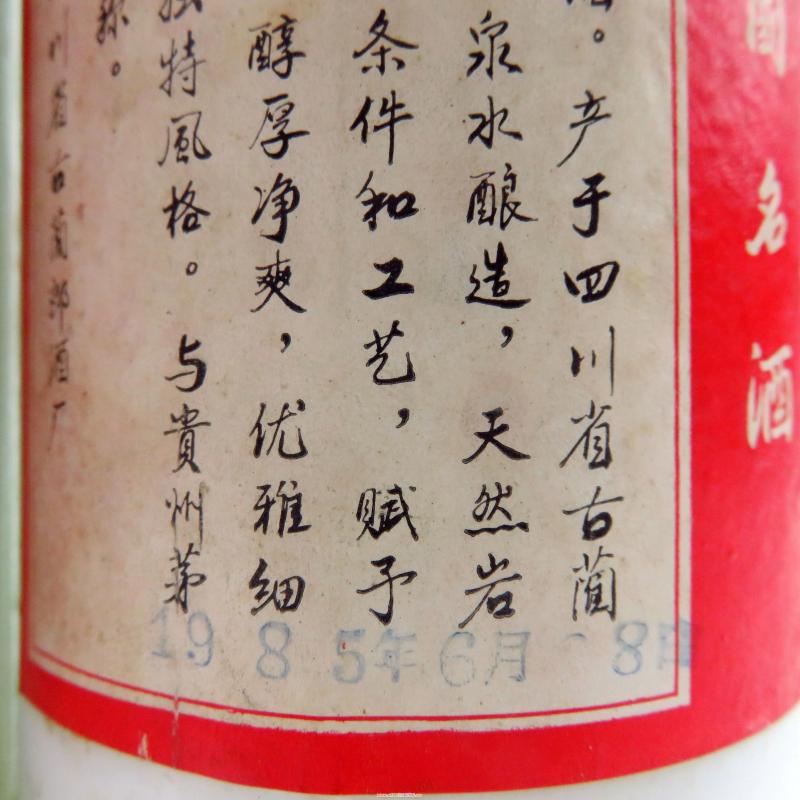 国名酒
。产于四川省古蔺
泉水酿造，天然岩
条件和工艺，赋予
醇厚净爽，优雅细
独特風格。与貴州茅
称。
川省古蔺郎酒厂
1985年6月8日